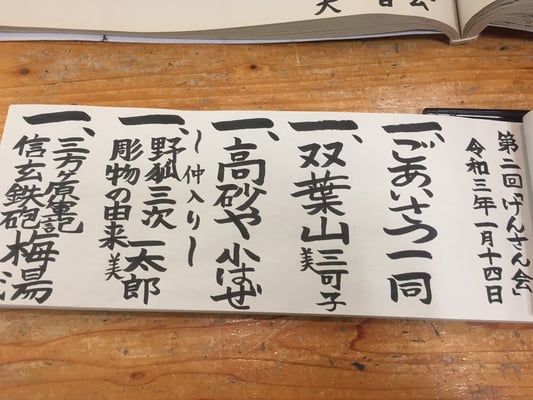 第二回「げんさん会」
令和三年一月十四日
一、ごあいさつ 一同
一、双葉山 三可子
美
一、高砂や 小はぜ
〜仲入り〜
一、野狐三次
彫物の由来 一太郎
美
一、三方ヶ原軍記
信玄鉄砲 梅湯